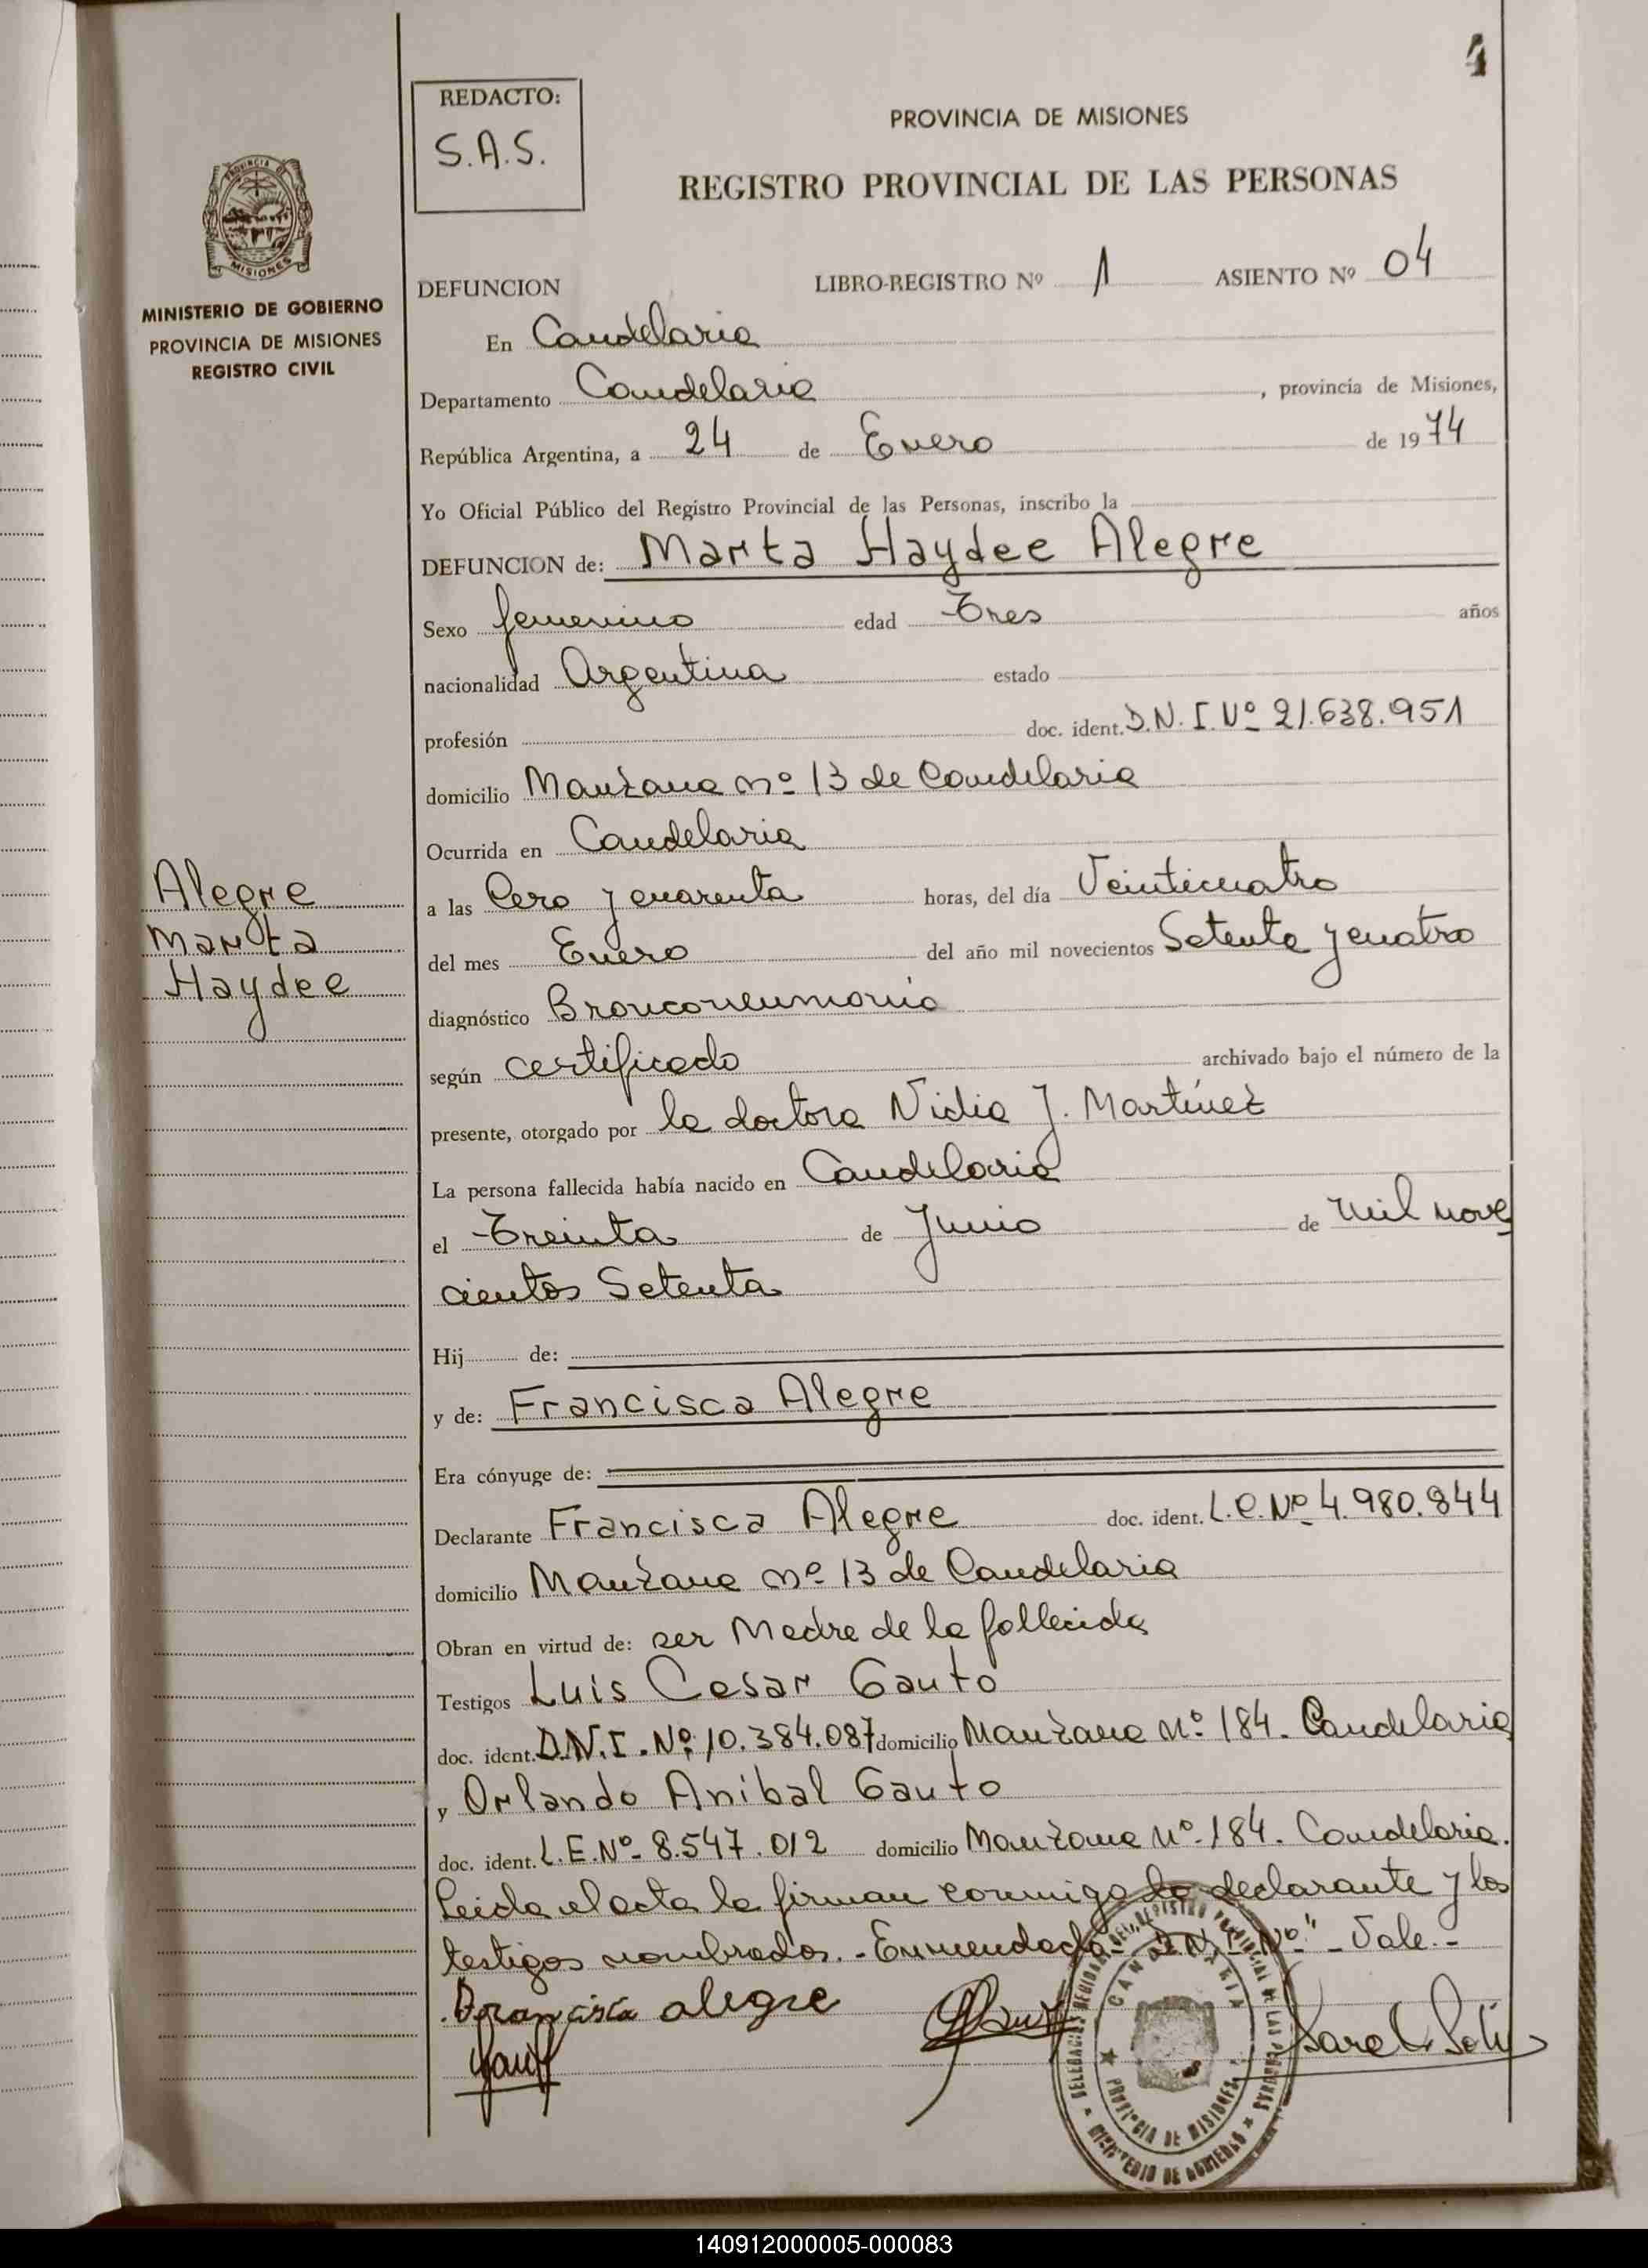 4
REDACTO:
S.A.S.
PROVINCIA DE MISIONES
REGISTRO PROVINCIAL DE LAS PERSONAS
PROVINCIA DE
MISIONES
MINISTERIO DE GOBIERNO
PROVINCIA DE MISIONES
REGISTRO CIVIL
DEFUNCION LIBRO-REGISTRO Nº 1 ASIENTO Nº 04
En Candelaria
Departamento Candelaria, provincia de Misiones,
República Argentina, a 24 de Enero de 1974
Yo Oficial Público del Registro Provincial de las Personas, inscribo la
DEFUNCION de: Marta Haydee Alegre
Sexo femenino edad Tres años
nacionalidad Argentina estado
profesión doc. ident. D.N.I. Nº 21.638.951
domicilio Manzana nº 13 de Candelaria
Ocurrida en Candelaria
Alegre
Marta
Haydee
a las Cero y cuarenta horas, del día Veinticuatro
del mes Enero del año mil novecientos Setenta y cuatro
diagnóstico Bronconeumonia
según certificado archivado bajo el número de la
presente, otorgado por la doctora Nidia J. Martínez
La persona fallecida había nacido en Candelaria
el Treinta de Junio de mil nove
cientos Setenta
Hij de:
y de: Francisca Alegre
Era cónyuge de:
Declarante Francisca Alegre doc. ident. L.C. Nº 4.980.844
domicilio Manzana nº 13 de Candelaria
Obran en virtud de: ser Madre de la fallecida
Testigos Luis Cesar Gauto
doc. ident. D.N.I. Nº 10.384.087 domicilio Manzana Nº 184. Candelaria
y Orlando Anibal Gauto
doc. ident. L.E. Nº 8.547.012 domicilio Manzana Nº 184. Candelaria.
Leida el acta la firman conmigo la declarante y los
testigos nombrados. - Enmendado "D.N.I. Nº" - Vale. -
Francisca alegre
DELEGACION DEL REGISTRO PROVINCIAL DE LAS PERSONAS
CANDELARIA
PROVINCIA DE MISIONES
MINISTERIO DE GOBIERNO
140912000005-000083